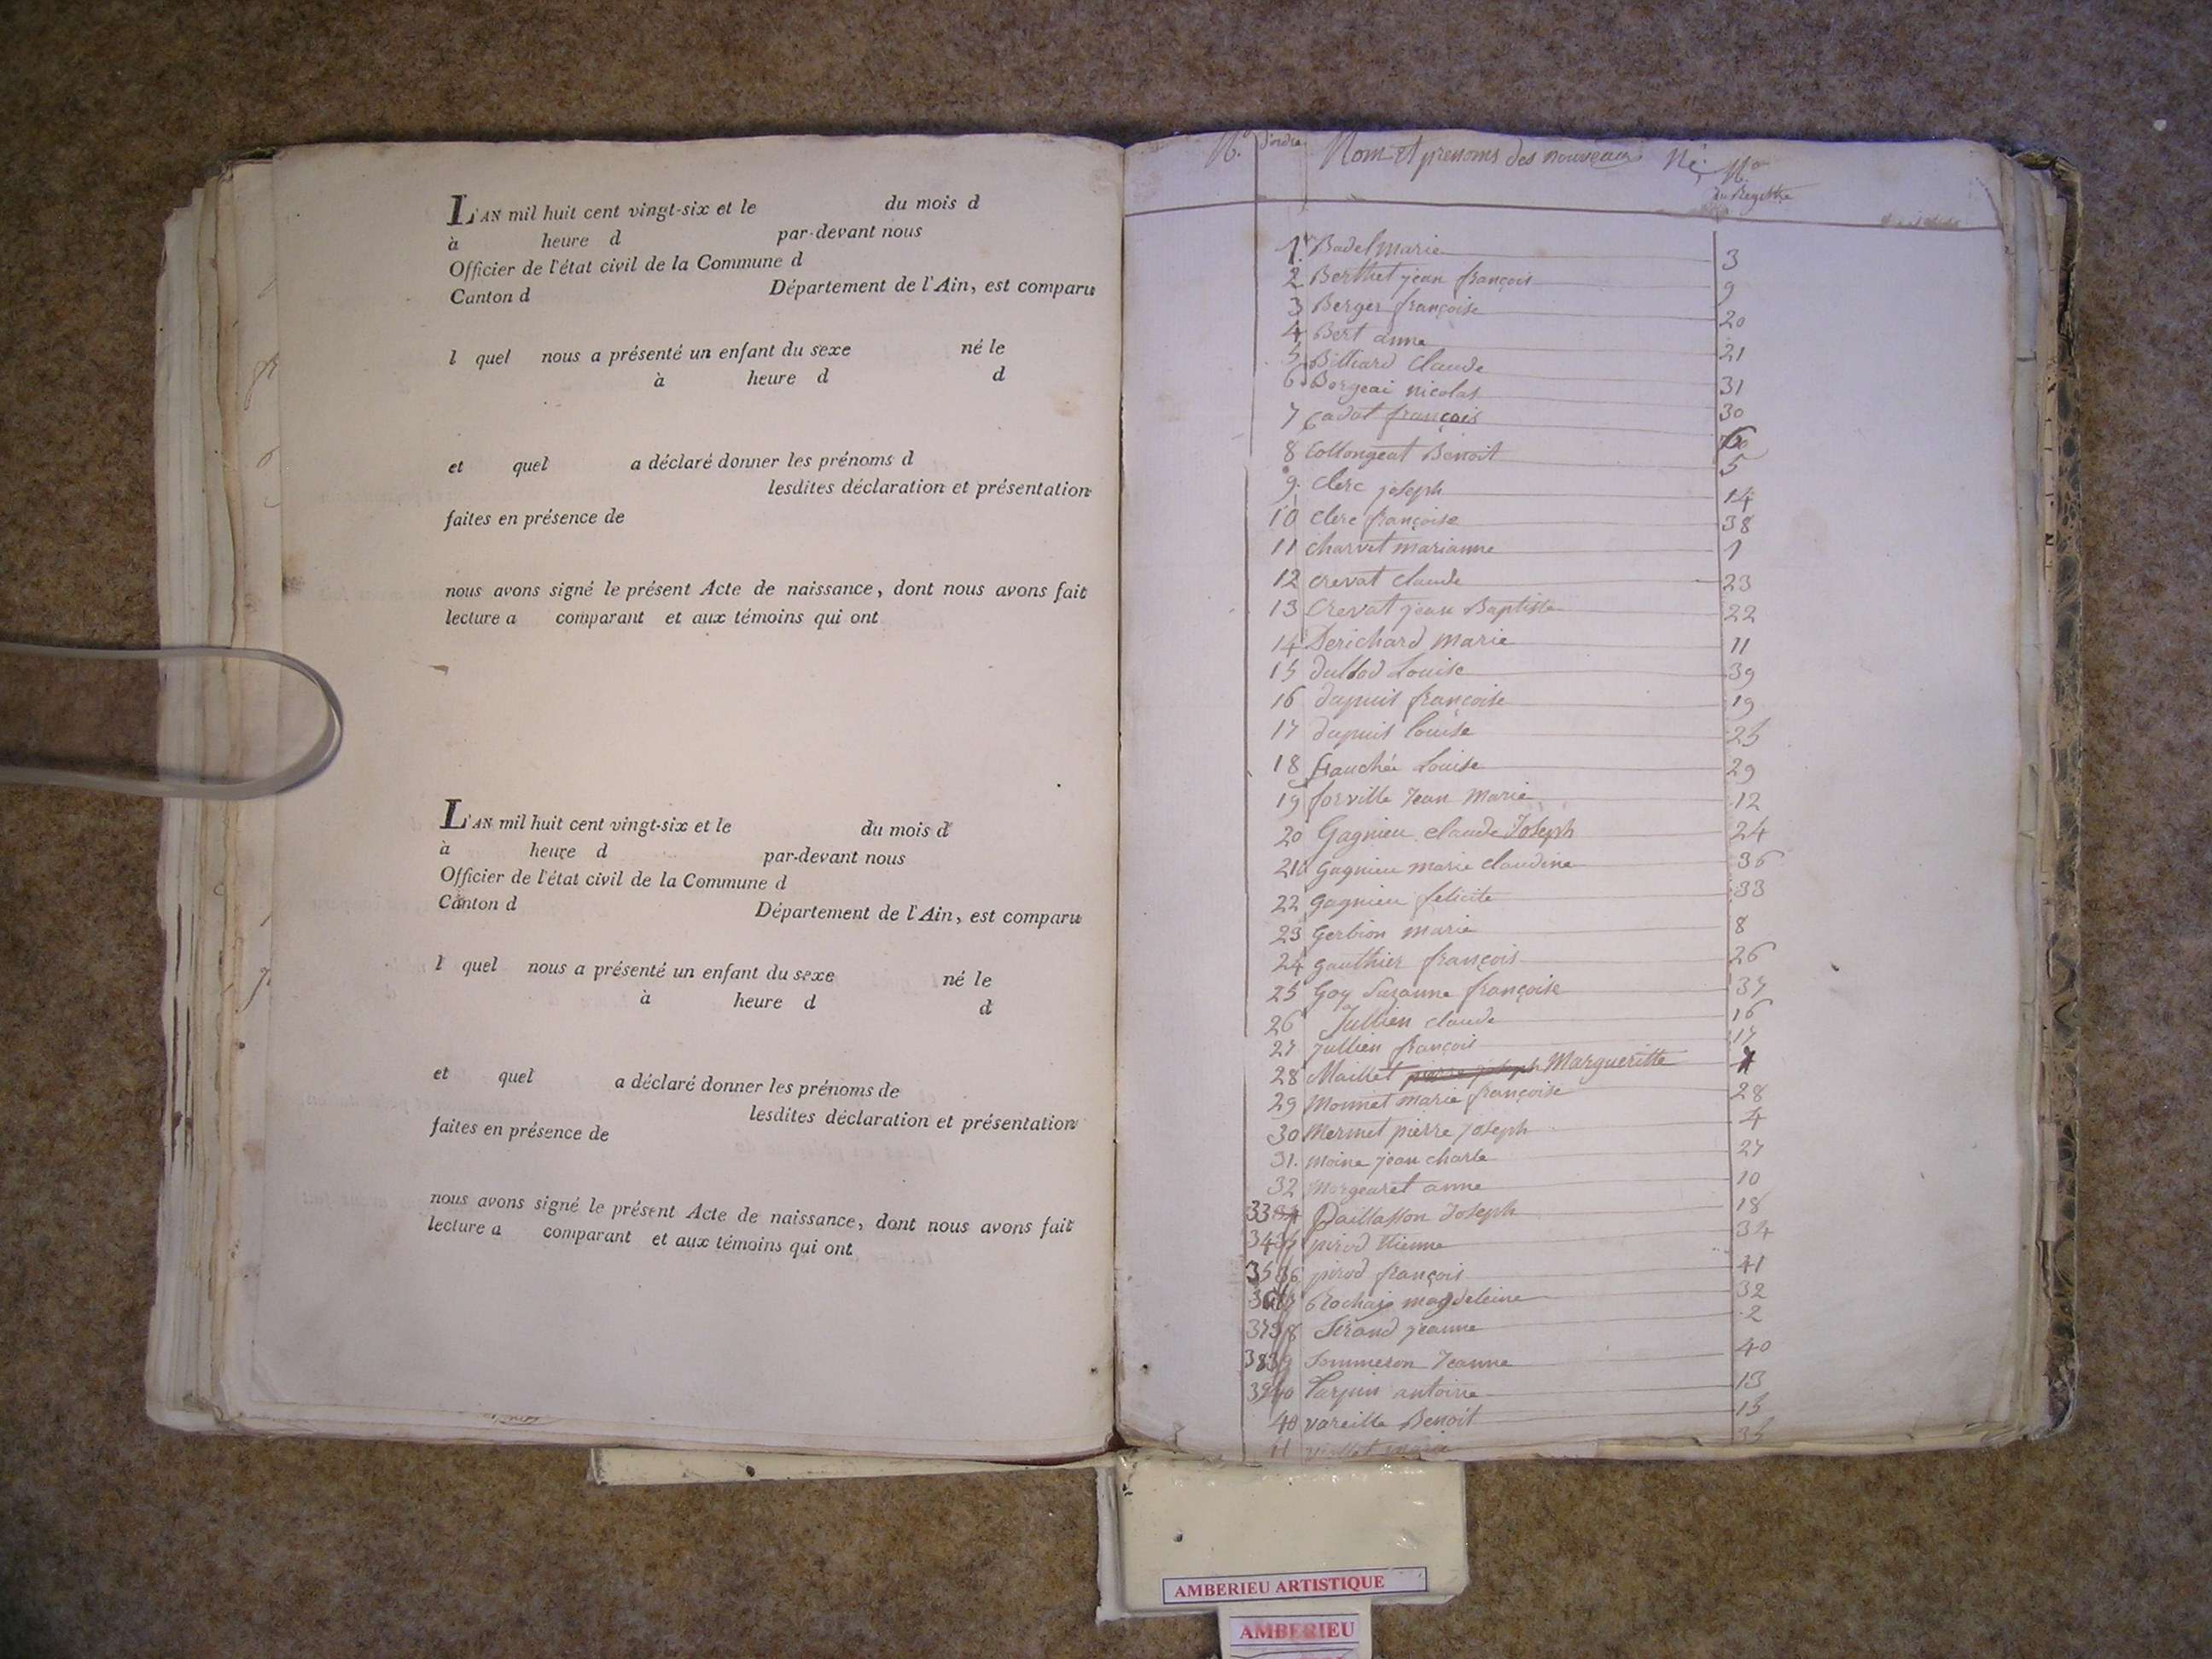 L'AN mil huit cent vingt-six et le du mois d
à heure d par-devant nous
Officier de l'état civil de la Commune d
Canton d Département de l'Ain, est comparu
l quel nous a présenté un enfant du sexe né le
à heure d d
et quel a déclaré donner les prénoms d
lesdites déclaration et présentation
faites en présence de
nous avons signé le présent Acte de naissance, dont nous avons fait
lecture a comparant et aux témoins qui ont
L'AN mil huit cent vingt-six et le du mois d
à heure d par-devant nous
Officier de l'état civil de la Commune d
Canton d Département de l'Ain, est comparu
l quel nous a présenté un enfant du sexe né le
à heure d d
et quel a déclaré donner les prénoms de
lesdites déclaration et présentation
faites en présence de
nous avons signé le présent Acte de naissance, dont nous avons fait
lecture a comparant et aux témoins qui ont
N.o d'ordre Nom et prenoms des nouveaux Né N.o
du Registre
1 Badel marie 3
2 Berthet jean françois 9
3 Berger françoise 20
4 Bert anne 21
5 Billiard Claude 31
6 Borgeai nicolas 30
7 Cadot françois 6
8 Collongeat Benoit 5
9 Clerc joseph 14
10 Clerc françoise 38
11 charvet marianne 1
12 crevat Claude 23
13 Crevat jean Baptiste 22
14 Derichard marie 11
15 Louise 39
16 dupuis françoise 19
17 dupuis louise 25
18 Louise 29
19 forville Jean Marie 12
20 Gagnieu claude Joseph 24
21 gagnieu marie claudine 36
22 gagnieu felicite 33
23 Gerbion marie 8
24 gauthier françois 26
25 Goy Suzanne françoise 37
26 Jullien claude 16
27 jullien françois 17
28 Maillet pierre joseph Margueritte 7
29 Monnet marie françoise 28
30 Mermet pierre joseph 4
31. moine jean charle 27
32 Morgearet anne 10
33 34 Paillasson Joseph 18
34 35 pirod Etienne 34
35 36 pirod françois 41
36 37 Rochaix magdeleine 32
37 38 Sirand jeanne 2
38 39 Sommeron Jeanne 40
39 40 Tarpin antoine 13
40 vareille Benoit 15
41 viallet marie 35
AMBERIEU ARTISTIQUE
AMBERIEU